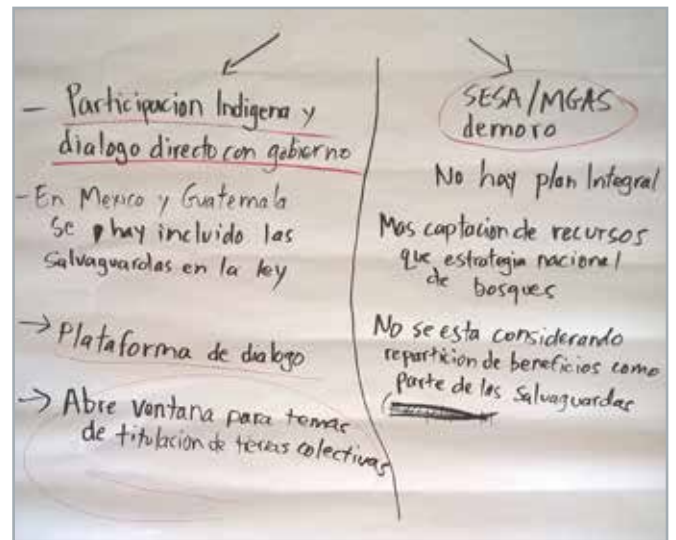 - Participacion Indigena y
dialogo directo con gobierno
- En Mexico y Guatemala
se hay incluido las
Salvaguardas en la ley
→ Plataforma de dialogo
→ Abre ventana para temas
de titulación de tierras colectivas
SESA/MGAS
demoro
No hay plan Integral
Mas captacion de recursos
que estrategia nacional
de bosques
No se esta considerando
reparticion de beneficios como
parte de las Salvaguardas